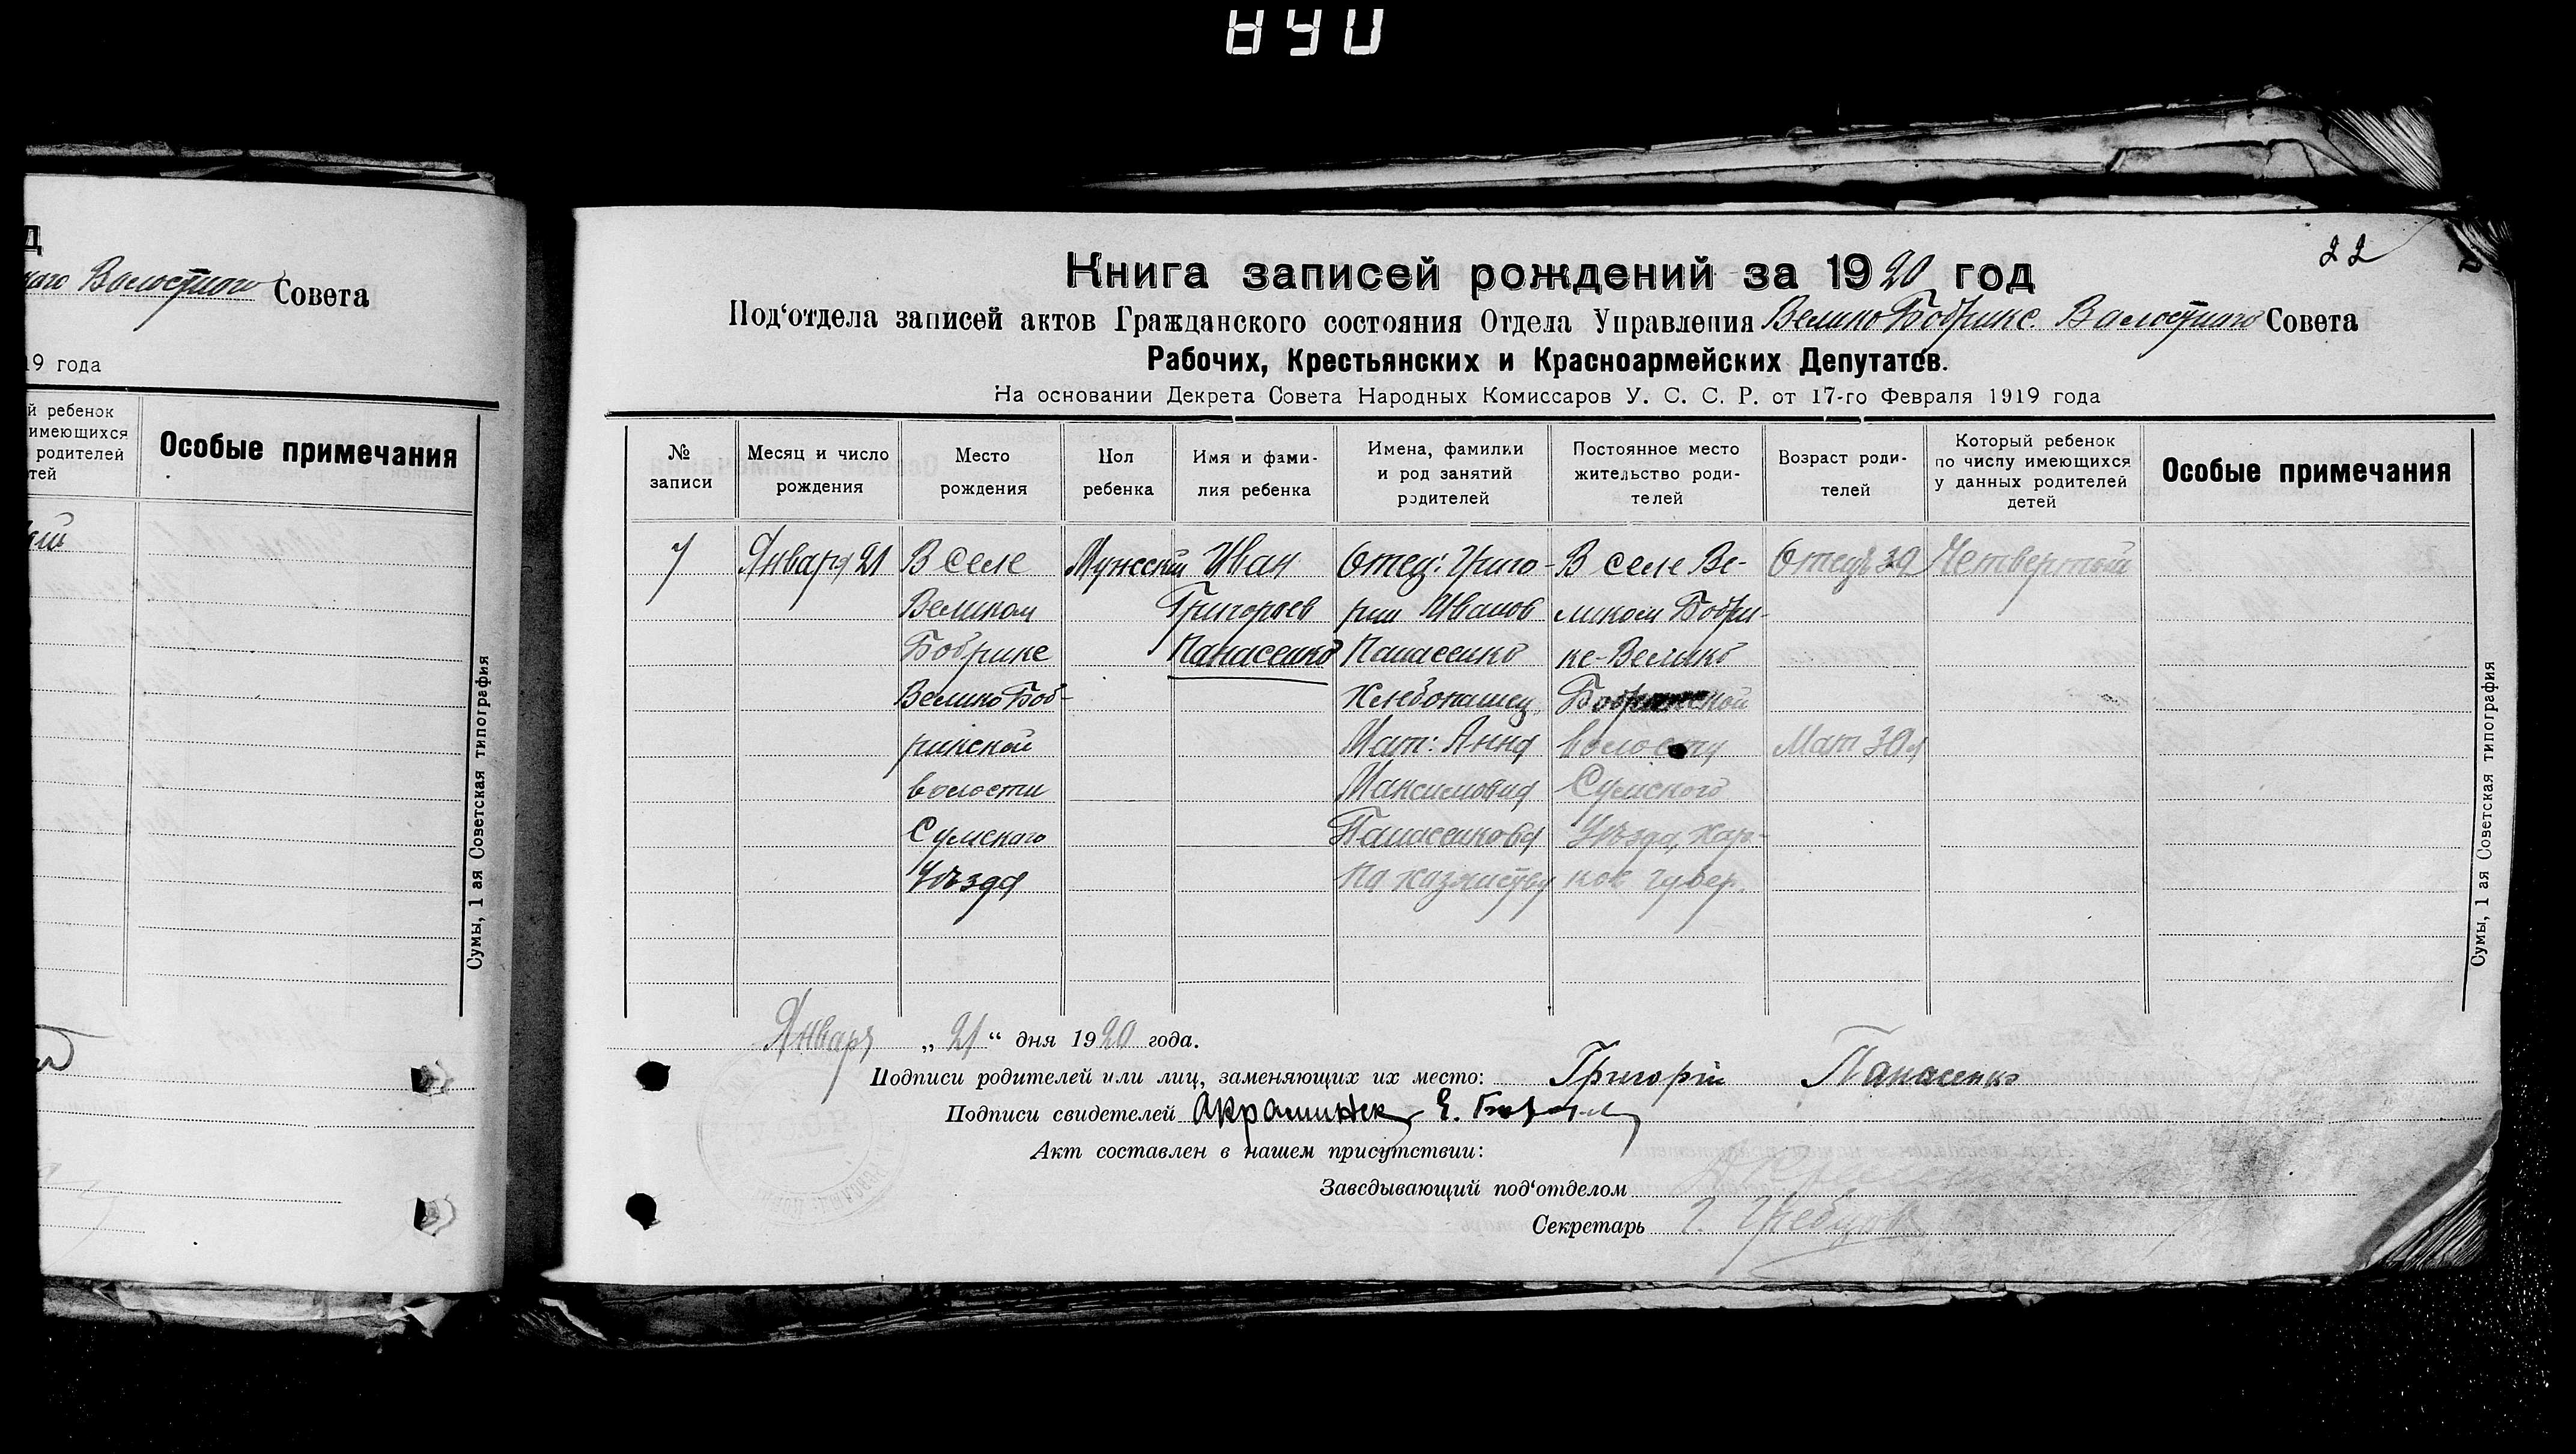 Д
каго Волостного Совета
19 года
й ребенок
имеющихся
родителей
тей
Особые примечания
Сумы, 1 ая Советская типография
22
Книга записей рождений за 1920 год
Под‘отдела записей актов Гражданского состояния Отдела Управления Велико Бобрикс. Волостного Совета
Рабочих, Крестьянских и Красноармейских Депутатов.
На основании Декрета Совета Народных Комиссаров У. С. С. Р. от 17-го Февраля 1919 года
№ записи
Месяц и число рождения
Место рождения
Пол ребенка
Имя и фами-
лия ребенка
Имена, фамилии
и род занятий
родителей
Постоянное место
жительство роди-
телей
Возраст роди-
телей
Который ребенок
по числу имеющихся
у данных родителей
детей
Особые примечания
7
Января 21
В селе
Великом
Бобрике
Велико Боб-
рикской
волости
Сумского
Уѣзда
Мужский
Иван
Григорьев
Панасенко
Отец: Григо-
рий Иванов
Панасенко
хлебопашец,
Мат: Анна
Максимовна
Панасенкова
По хазяиству
В селе Ве-
ликом Бобри-
ке-Велико
Бобрикской
волости
Сумского
Уѣзда, Харь-
ков губер.
Отець 39
Мат 30 л
Четвертый
Сумы, 1 ая Советская типография
Января „21“ дня 1920 года.
Подписи родителей или лиц, заменяющих их место: Григорій Панасенко
Подписи свидетелей
Акт составлен в нашем присутствии:
Заведывающий под‘отделом
Секретарь Г.